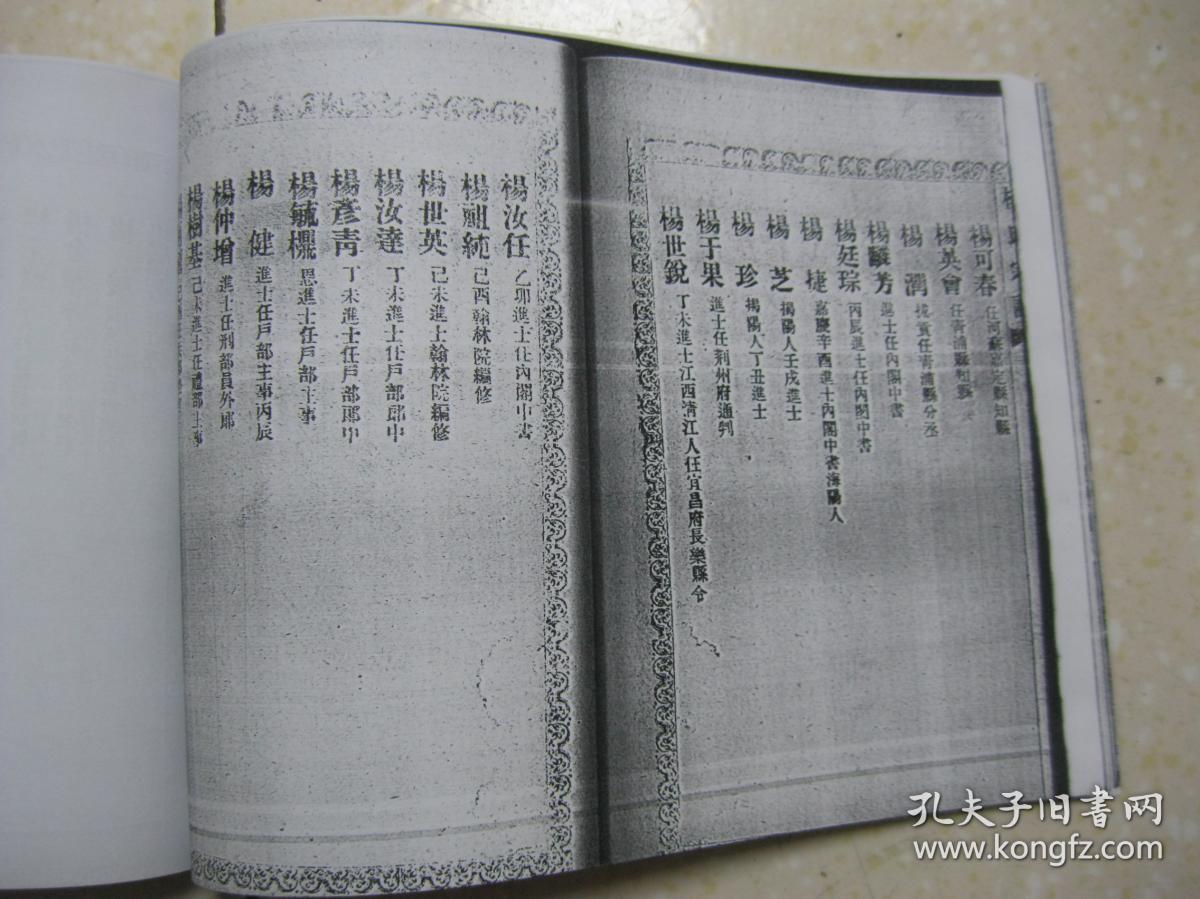 楊可春 任河蘇嘉定縣知縣
楊英會 任青浦縣知縣
楊潤 拔貢任青浦縣分丞
楊馥芳 進士任內閣中書
楊廷琮 丙辰進士任內閣中書
楊捷 嘉慶辛酉進士內閣中書海陽人
楊芝 揭陽人壬戌進士
楊珍 揭陽人丁丑進士
楊于果 進士任荆州府通判
楊世銳 丁未進士江西清江人任宜昌府長樂縣令
楊汝任 乙卯進士任內閣中書
楊祖純 己酉翰林院編修
楊世英 己未進士翰林院編修
楊汝達 丁未進士任戶部郎中
楊彥青 丁未進士任戶部郎中
楊毓 恩進士任戶部主事
楊健 進士任戶部主事丙辰
楊仲增 進士任刑部員外郎
楊樹基 己未進士任禮部主事
孔夫子旧书网
www.kongfz.com